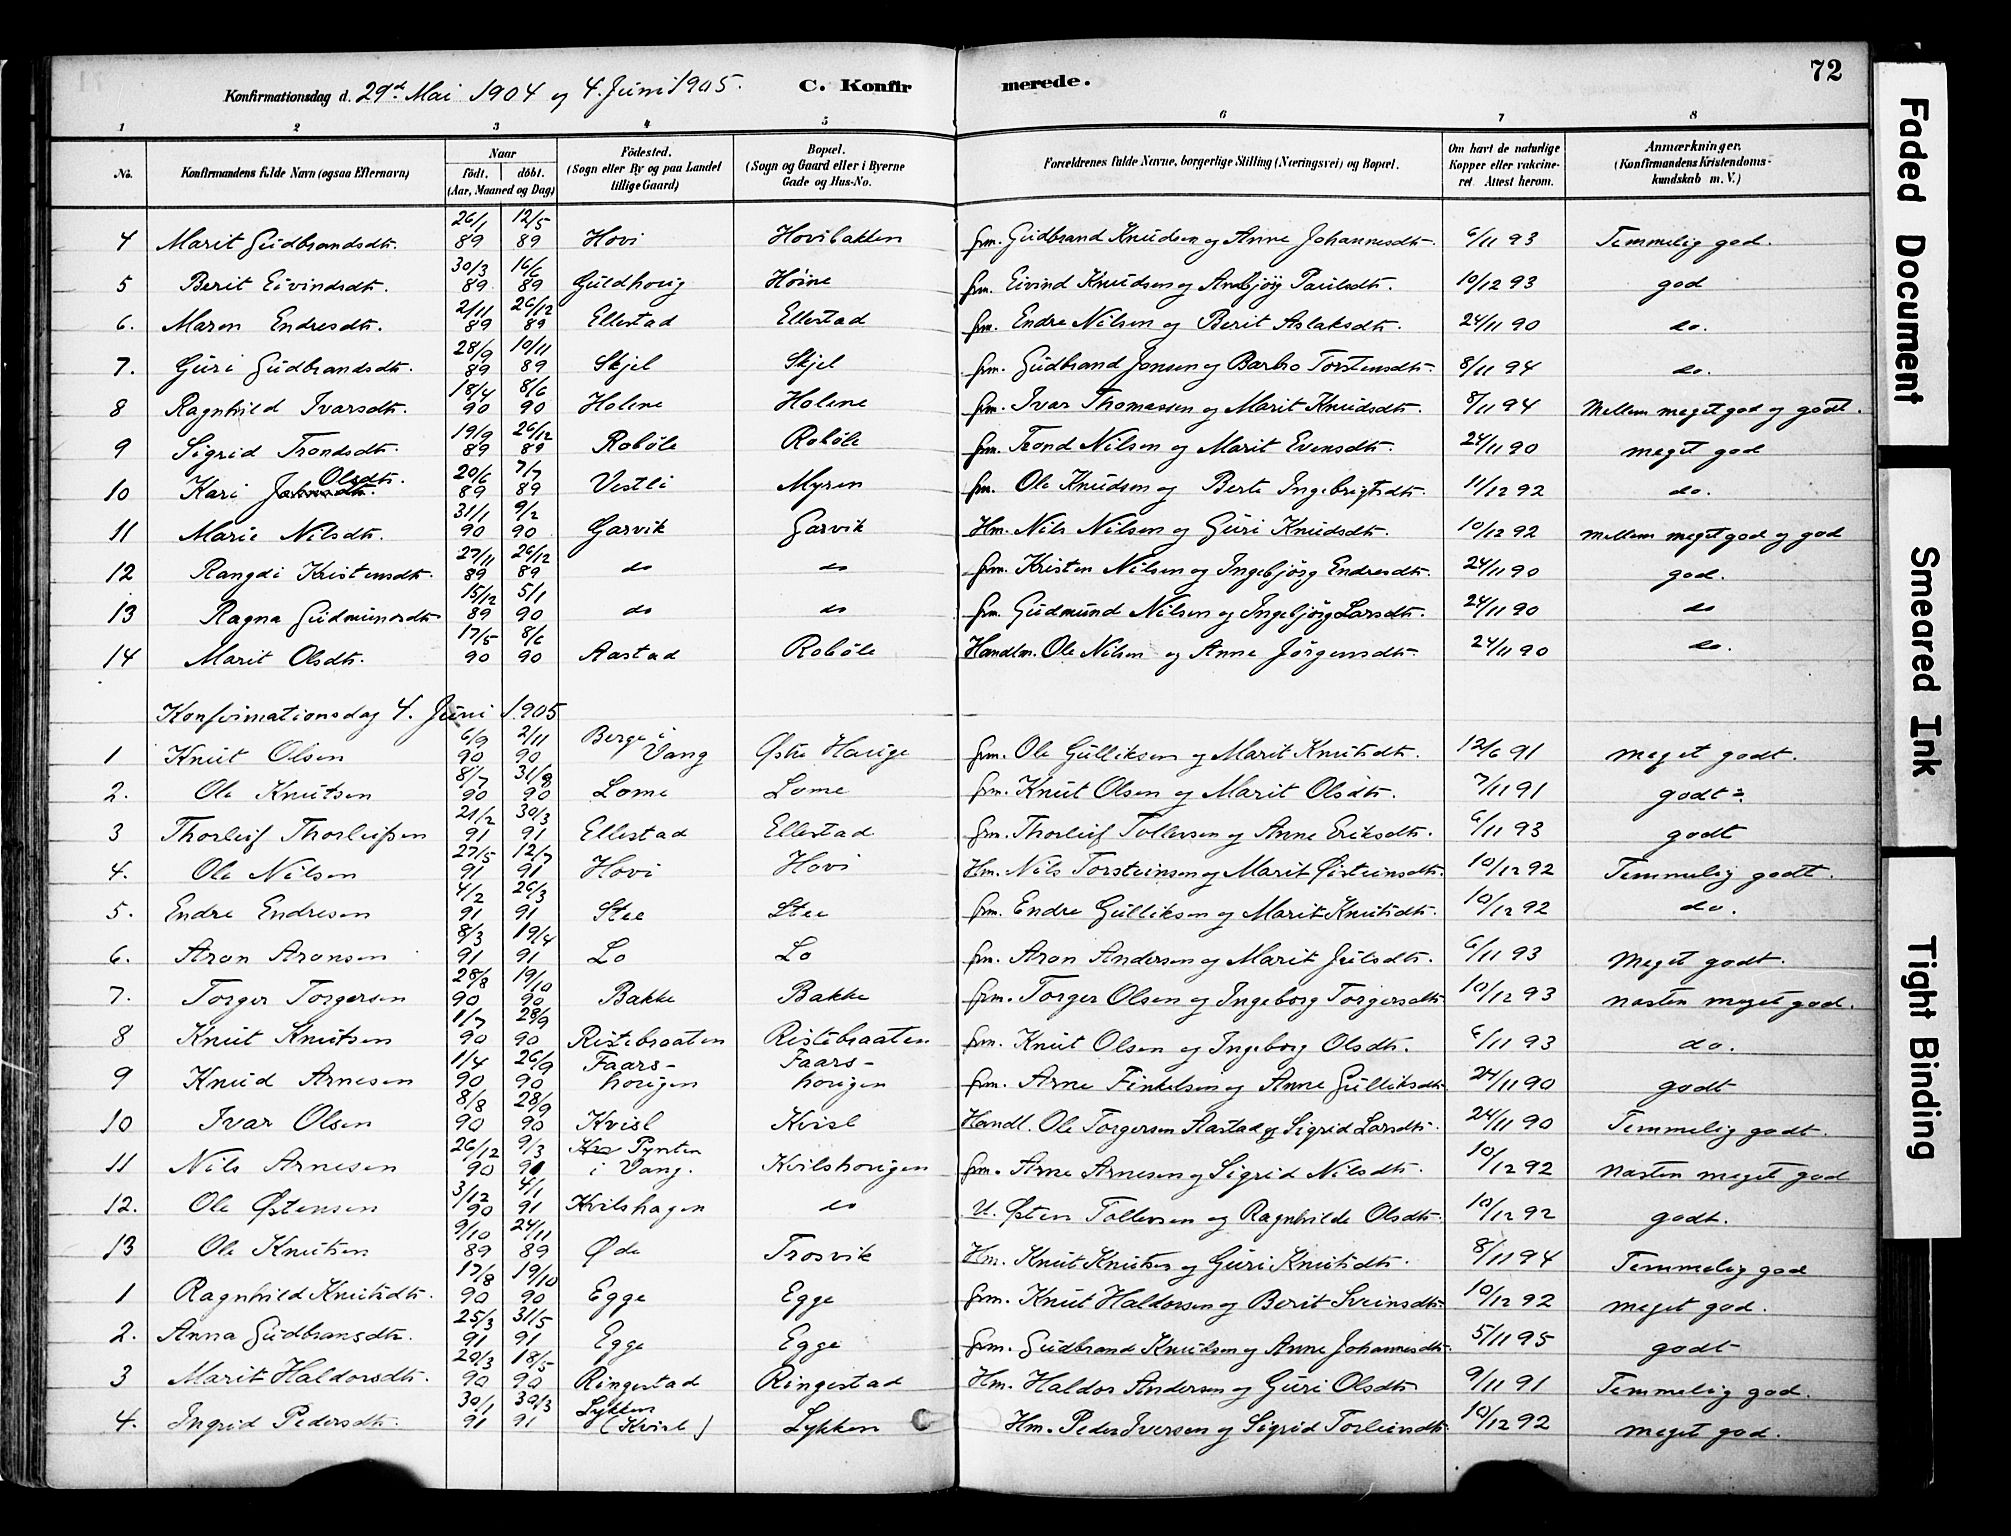 72
Konfirmationsdag d. 29de Mai 1904 og 4. Juni 1905. C. Konfirmerede.
1 2 3 4 5 6 7 8
No. Konfirmandens fulde Navn (ogsaa Efternavn) Naar født. døbt. (Aar, Maaned og Dag) Fødested. (Sogn eller By og paa Landet tillige Gaard) Bopæl. (Sogn og Gaard eller i Byerne Gade og Hus-No. Forældrenes fulde Navne, borgerlige Stilling (Næringsvei) og Bopæl. Om havt de naturlige Kopper eller vakcineret. Attest herom. Anmærkninger. (Konfirmandens Kristendomskundskab m. V.)
4 Marit Gudbrandsdtr. 26/1 89 12/5 89 Hovi Hovibakken frm. Gudbrand Knudsen og Anne Johannesdtr. 6/11 93 Temmelig god.
5 Berit Eivindsdtr. 30/3 89 16/6 89 Guldhoug Høine frm. Eivind Knudsen og Ambjørg Paulsdtr. 10/12 93 god
6. Maren Endresdtr. 2/11 89 26/12 89 Ellestad Ellestad frm. Endre Nilsen og Berit Aslaksdtr. 24/11 90 do.
7. Guri Gudbrandsdtr. 28/9 89 10/11 89 Skjel Skjel frm. Gudbrand Jonsen og Barbro Torstensdtr. 8/11 94 do.
8 Ragnhild Ivarsdtr. 18/4 90 8/6 90 Holene Holene frm. Ivar Thomassen og Marit Knudsdtr. 8/11 94 Mellem meget god og godt.
9 Sigrid Trondsdtr. 19/9 89 26/12 89 Robøle Robøle frm. Trond Nilsen og Marit Evensdtr. 24/11 90 meget god
10 Kari Olsdtr. 20/6 89 7/7 89 Vestli Myren frm. Ole Knudsen og Berte Ingebrigtsdtr. 11/12 92 do.
11 Marie Nilsdtr. 31/1 90 9/2 90 Garvik Garvik Hm. Nils Nilsen og Guri Knudsdtr. 10/12 92 mellem meget god og god
12 Rangdi Kristensdtr. 27/11 89 26/12 89 do do frm. Kristen Nilsen og Ingebjørg Endresdtr. 24/11 90 god.
13 Ragna Gudmundsdtr 15/12 89 5/1 90 do do frm. Gudmund Nilsen og Ingebjørg Larsdtr. 24/11 90 do
14 Marit Olsdtr. 17/5 90 8/6 90 Aastad Robøle Handlm. Ole Nilsen og Anne Jörgensdtr. 24/11 90 do.
Konfirmationsdag 4. Juni 1905
1 Knut Olsen 6/9 90 2/11 90 Berge i Vang Østre Hauge frm. Ole Gulliksen og Marit Knutsdtr. 12/6 91 meget godt.
2. Ole Knutsen 8/7 90 31/8 90 Lome Lome frm. Knut Olsen og Marit Olsdtr. 7/11 91 godt
3 Thorleif Thorleifsen 21/2 91 30/3 91 Ellestad Ellestad frm. Thorleif Tollevsen og Anne Eriksdtr. 6/11 93 godt
4. Ole Nilsen 27/5 91 12/7 91 Hovi Hovi Hm. Nils Torsteinsen og Marit Øisteinsdtr. 10/12 92 Temmelig godt.
5. Endre Endresen 4/2 91 26/3 91 Stee Stee frm. Endre Gulliksen og Marit Knutsdtr. 10/12 92 do.
6. Aron Aronsen 8/3 91 19/4 91 Lo Lo frm. Aron Andersen og Marit Julsdtr. 6/11 93 Meget godt.
7. Torger Torgersen 28/8 90 19/10 90 Bakke Bakke frm. Torger Olsen og Ingeborg Torgersdtr 10/12 93 næsten meget god.
8 Knut Knutsen 1/7 90 28/9 90 Ristebraaten Ristebraaten frm. Knut Olsen og Ingeborg Olsdtr. 6/11 93 do.
9 Knud Arnesen 1/4 90 26/9 90 Faarshougen Faarshougen frm. Arne Finkelsen og Anne Gulliksdtr 24/11 90 godt
10 Ivar Olsen 8/8 90 28/9 90 Kvisl Kvisl Handl. Ole Torgersen Aastad og Sigrid Larsdtr. 24/11 90 Temmelig godt.
11 Nils Arnesen 26/12 90 9/3 91 Pynten i Vang. Kvilshougen frm. Arne Arnesen og Sigrid Nilsdtr. 10/12 92 næsten meget god
12. Ole Østensen 3/12 90 4/1 91 Kvilshagen do U. Østen Tollevsen og Ragnhilde Olsdtr. 10/12 92 godt.
13 Ole Knutsen 9/10 89 24/11 89 Øde Trosvik Hm. Knut Knutsen og Guri Knutsdtr. 8/11 94 Temmelig god
1 Ragnhild Knutsdtr. 17/8 90 19/10 90 Egge Egge frm. Knut Haldorsen og Berit Sveinsdtr. 10/12 92 meget god.
2. Anna Gudbransdtr. 25/3 91 31/5 91 Egge Egge frm. Gudbrand Knudsen og Anne Johannesdtr. 5/11 95 godt
3 Marit Haldorsdtr. 20/3 90 18/5 90 Ringestad Ringestad Hm. Haldor Andersen og Guri Olsdtr 9/11 91 Temmelig god.
4. Ingrid Pedersdtr. 30/1 91 30/3 91 Lykken (Kvisl) Lykken Hm. Peder Iversen og Sigrid Torleivsdtr. 10/12 92 meget god.
Faded Document
Smeared Ink
Tight Binding